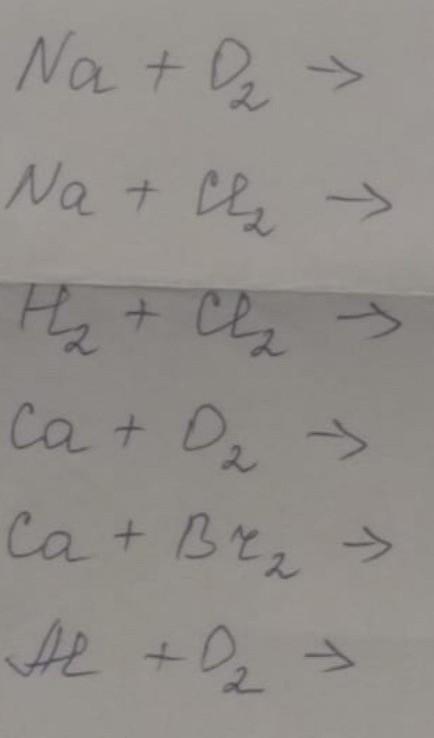 Na + O₂ →
Na + Cl₂ →
H₂ + Cl₂ →
Ca + O₂ →
Ca + Br₂ →
Al + O₂ →